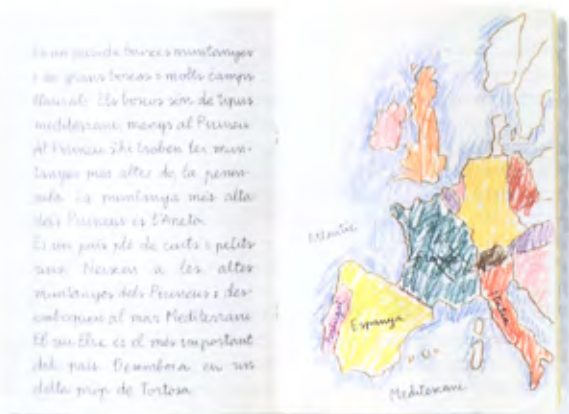 Es un país de turices muntanyes
i de grans boscos i molts camps
Naturals Els boscos son de tipus
mediterrani menys al Pirineu
Al Pirineu s'hi troben les mun-
tanyes més altes de la penin-
sula La muntanya més alta
dels Pirineus es L'Aneto.
Es un país ple de curts i petits
rius Neixen a les altes
muntanyes dels Pirineus i des-
emboquen al mar Mediterrani
El riu Ebre es el més important
del país Desembora en un
delta prop de Tortosa
Atlantic
França
Italia
Espanya
Portugal
Mediterrani